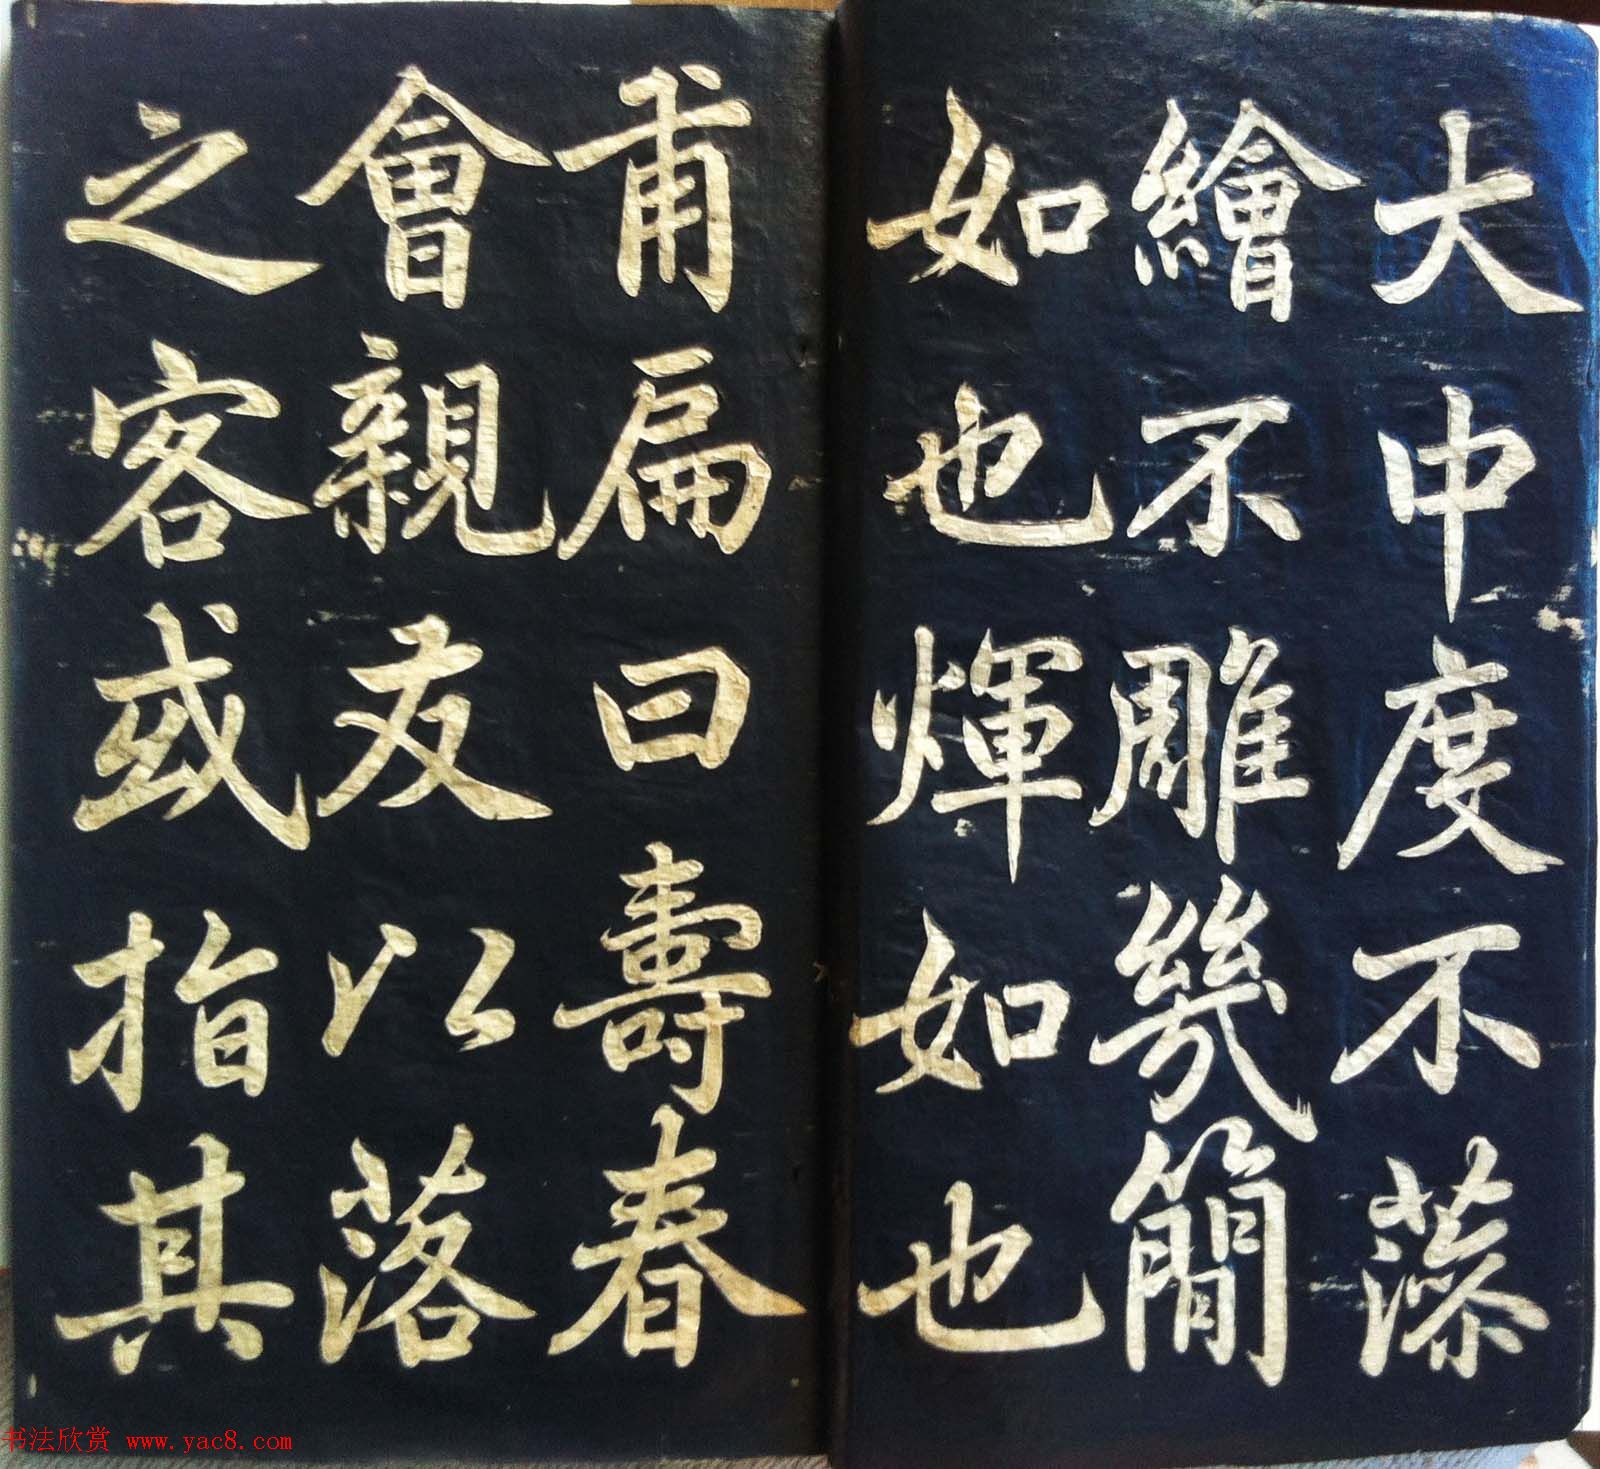 大中度不藻
繪不雕幾簡
如也煇如也
甫扁曰壽春
會親友以落
之客或指其
书法欣赏 www.yac8.com